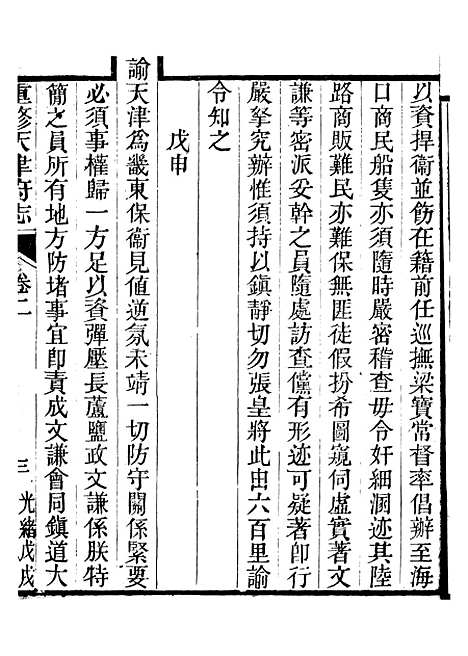 以資捍衞並飭在籍前任巡撫梁寶常督率倡辦至海
口商民船隻亦須隨時嚴密稽查毋令奸細溷迹其陸
路商販難民亦難保無匪徒假扮希圖窺伺虛實著文
謙等密派妥幹之員隨處訪查儻有形迹可疑著卽行
嚴拏究辦惟須持以鎭靜切勿張皇將此由六百里諭
令知之
戊申
諭天津爲畿東保衞見値逆氛未靖一切防守關係緊要
必須事權歸一方足以資彈壓長蘆鹽政文謙係朕特
簡之員所有地方防堵事宜卽責成文謙會同鎭道大
重修天津府志 卷二 三 光緒戊戌